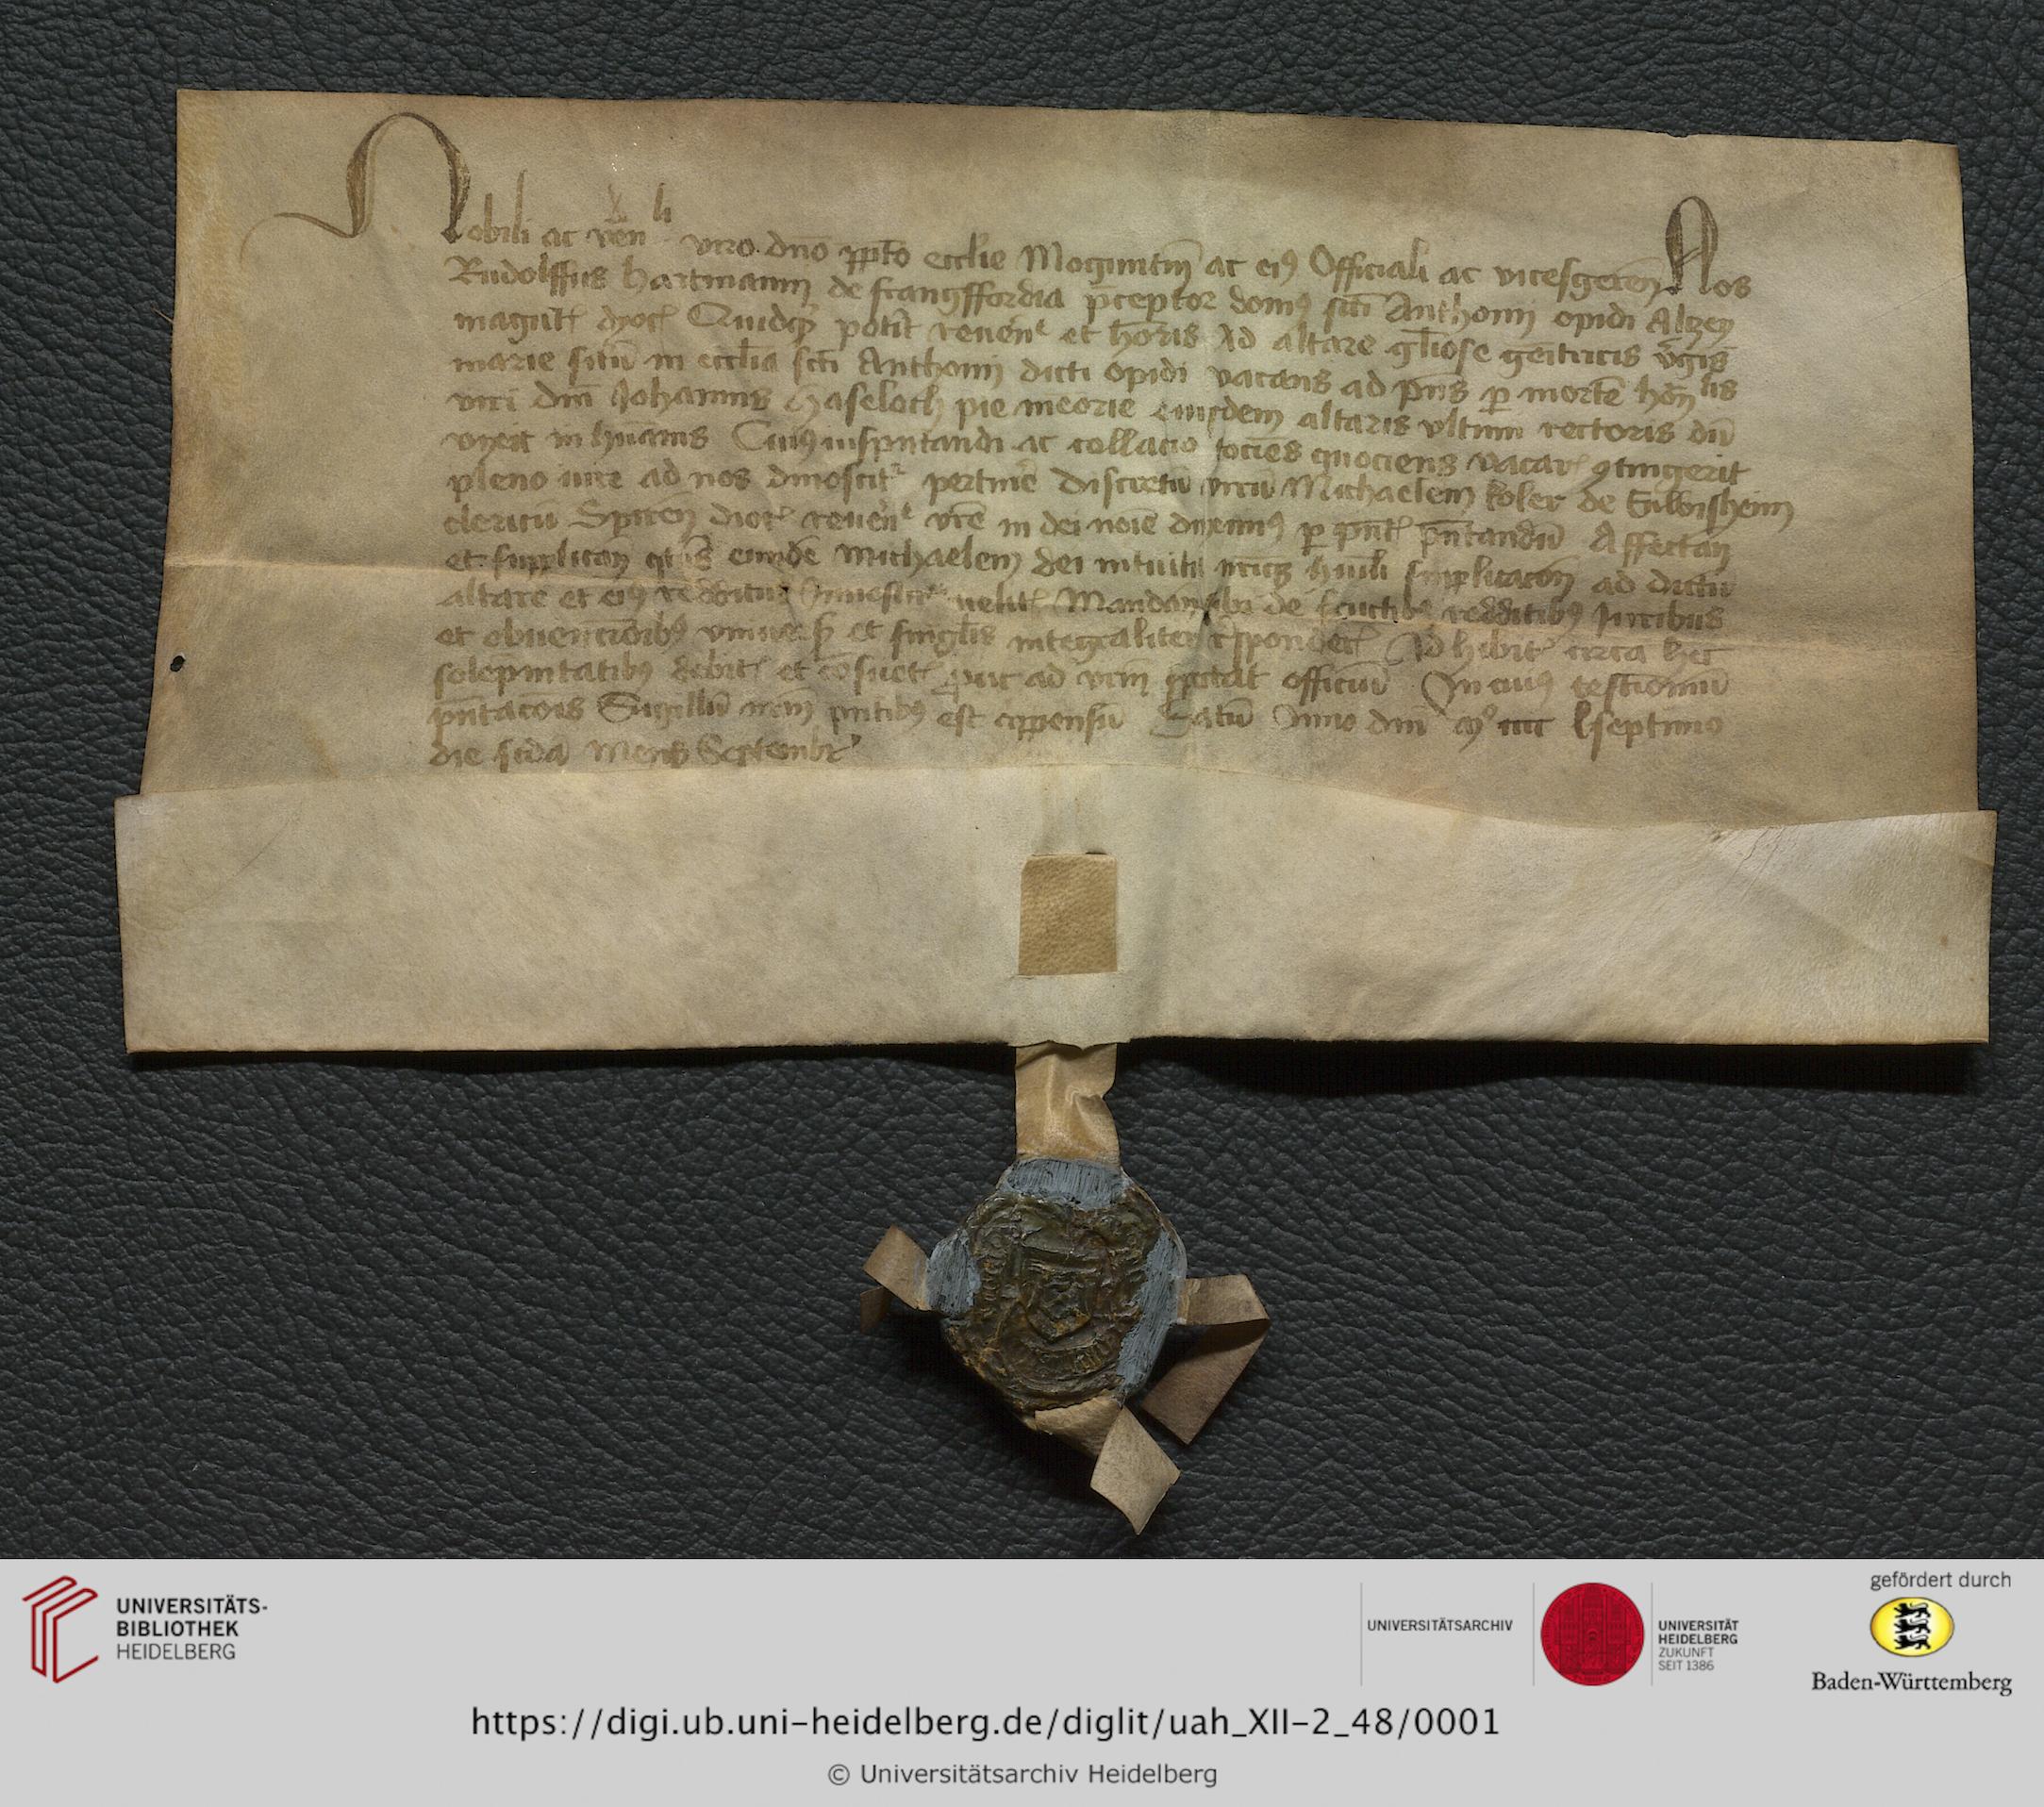 Nobili ac ven li viro dno ppto ecclie Moguntin ac eius Officiali ac vicesgeren Nos
Rudolffus Hartmanni de franqffordia preceptor domus scti Anthonij opidi Altzey
magunt dyoc potit reuen et honoris Ad altare gliose genitricis vgis
marie situ in ecclia scti Anthonij dicti opidi vacans ad pns p morte hon lis
viri dni Johannis Haseloch pie meorie eiusdem altaris vltimi rectoris du
vixit in huanis Cuius ac collacio tociens quociens vacare 9tingerit
pleno iure ad nos dinoscitr pertinere discretu viru Michaelem koler de
clericu Spiren dioc reuen vre in dei noie duximus p pnt pntandu Affectan
et supplican eunde Michaelem dei intuitu nrique huili supplicacon ad dictu
altare et eius redditus Inuestire velit Mandan sibi de fructibus redditibus Juribus
et obuencioibus vniuers et singlis integraliter rsponderi Adhibit circa hec
solepnitatibus debit et cosuet put ad vrm spectat officiu In cuius testimoniu
pntacois Sigillu nrm pntibus est appensu Datu Anno dni mo iiiic lseptimo
die scda Mens Septembr
UNIVERSITÄTS-
BIBLIOTHEK
HEIDELBERG
UNIVERSITÄTSARCHIV
UNIVERSITÄT
HEIDELBERG
ZUKUNFT
SEIT 1386
gefördert durch
Baden-Württemberg
https://digi.ub.uni-heidelberg.de/diglit/uah_XII-2_48/0001
© Universitätsarchiv Heidelberg